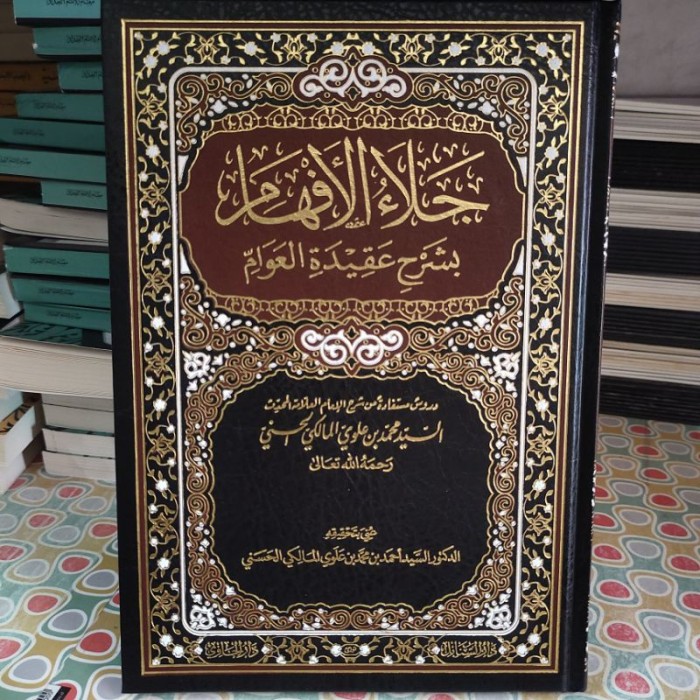 جَلَاءُ الْأَفْهَام
بِشَرْحِ عَقِيْدَةِ العَوَامِّ
دروس مستفادة من شرح الإمام العلامة المحدث
السيد محمد بن علوي المالكي الحسني
رحمه الله تعالى
عني بتحقيقه
الدكتور السيد أحمد بن محمد بن علوي المالكي الحسني